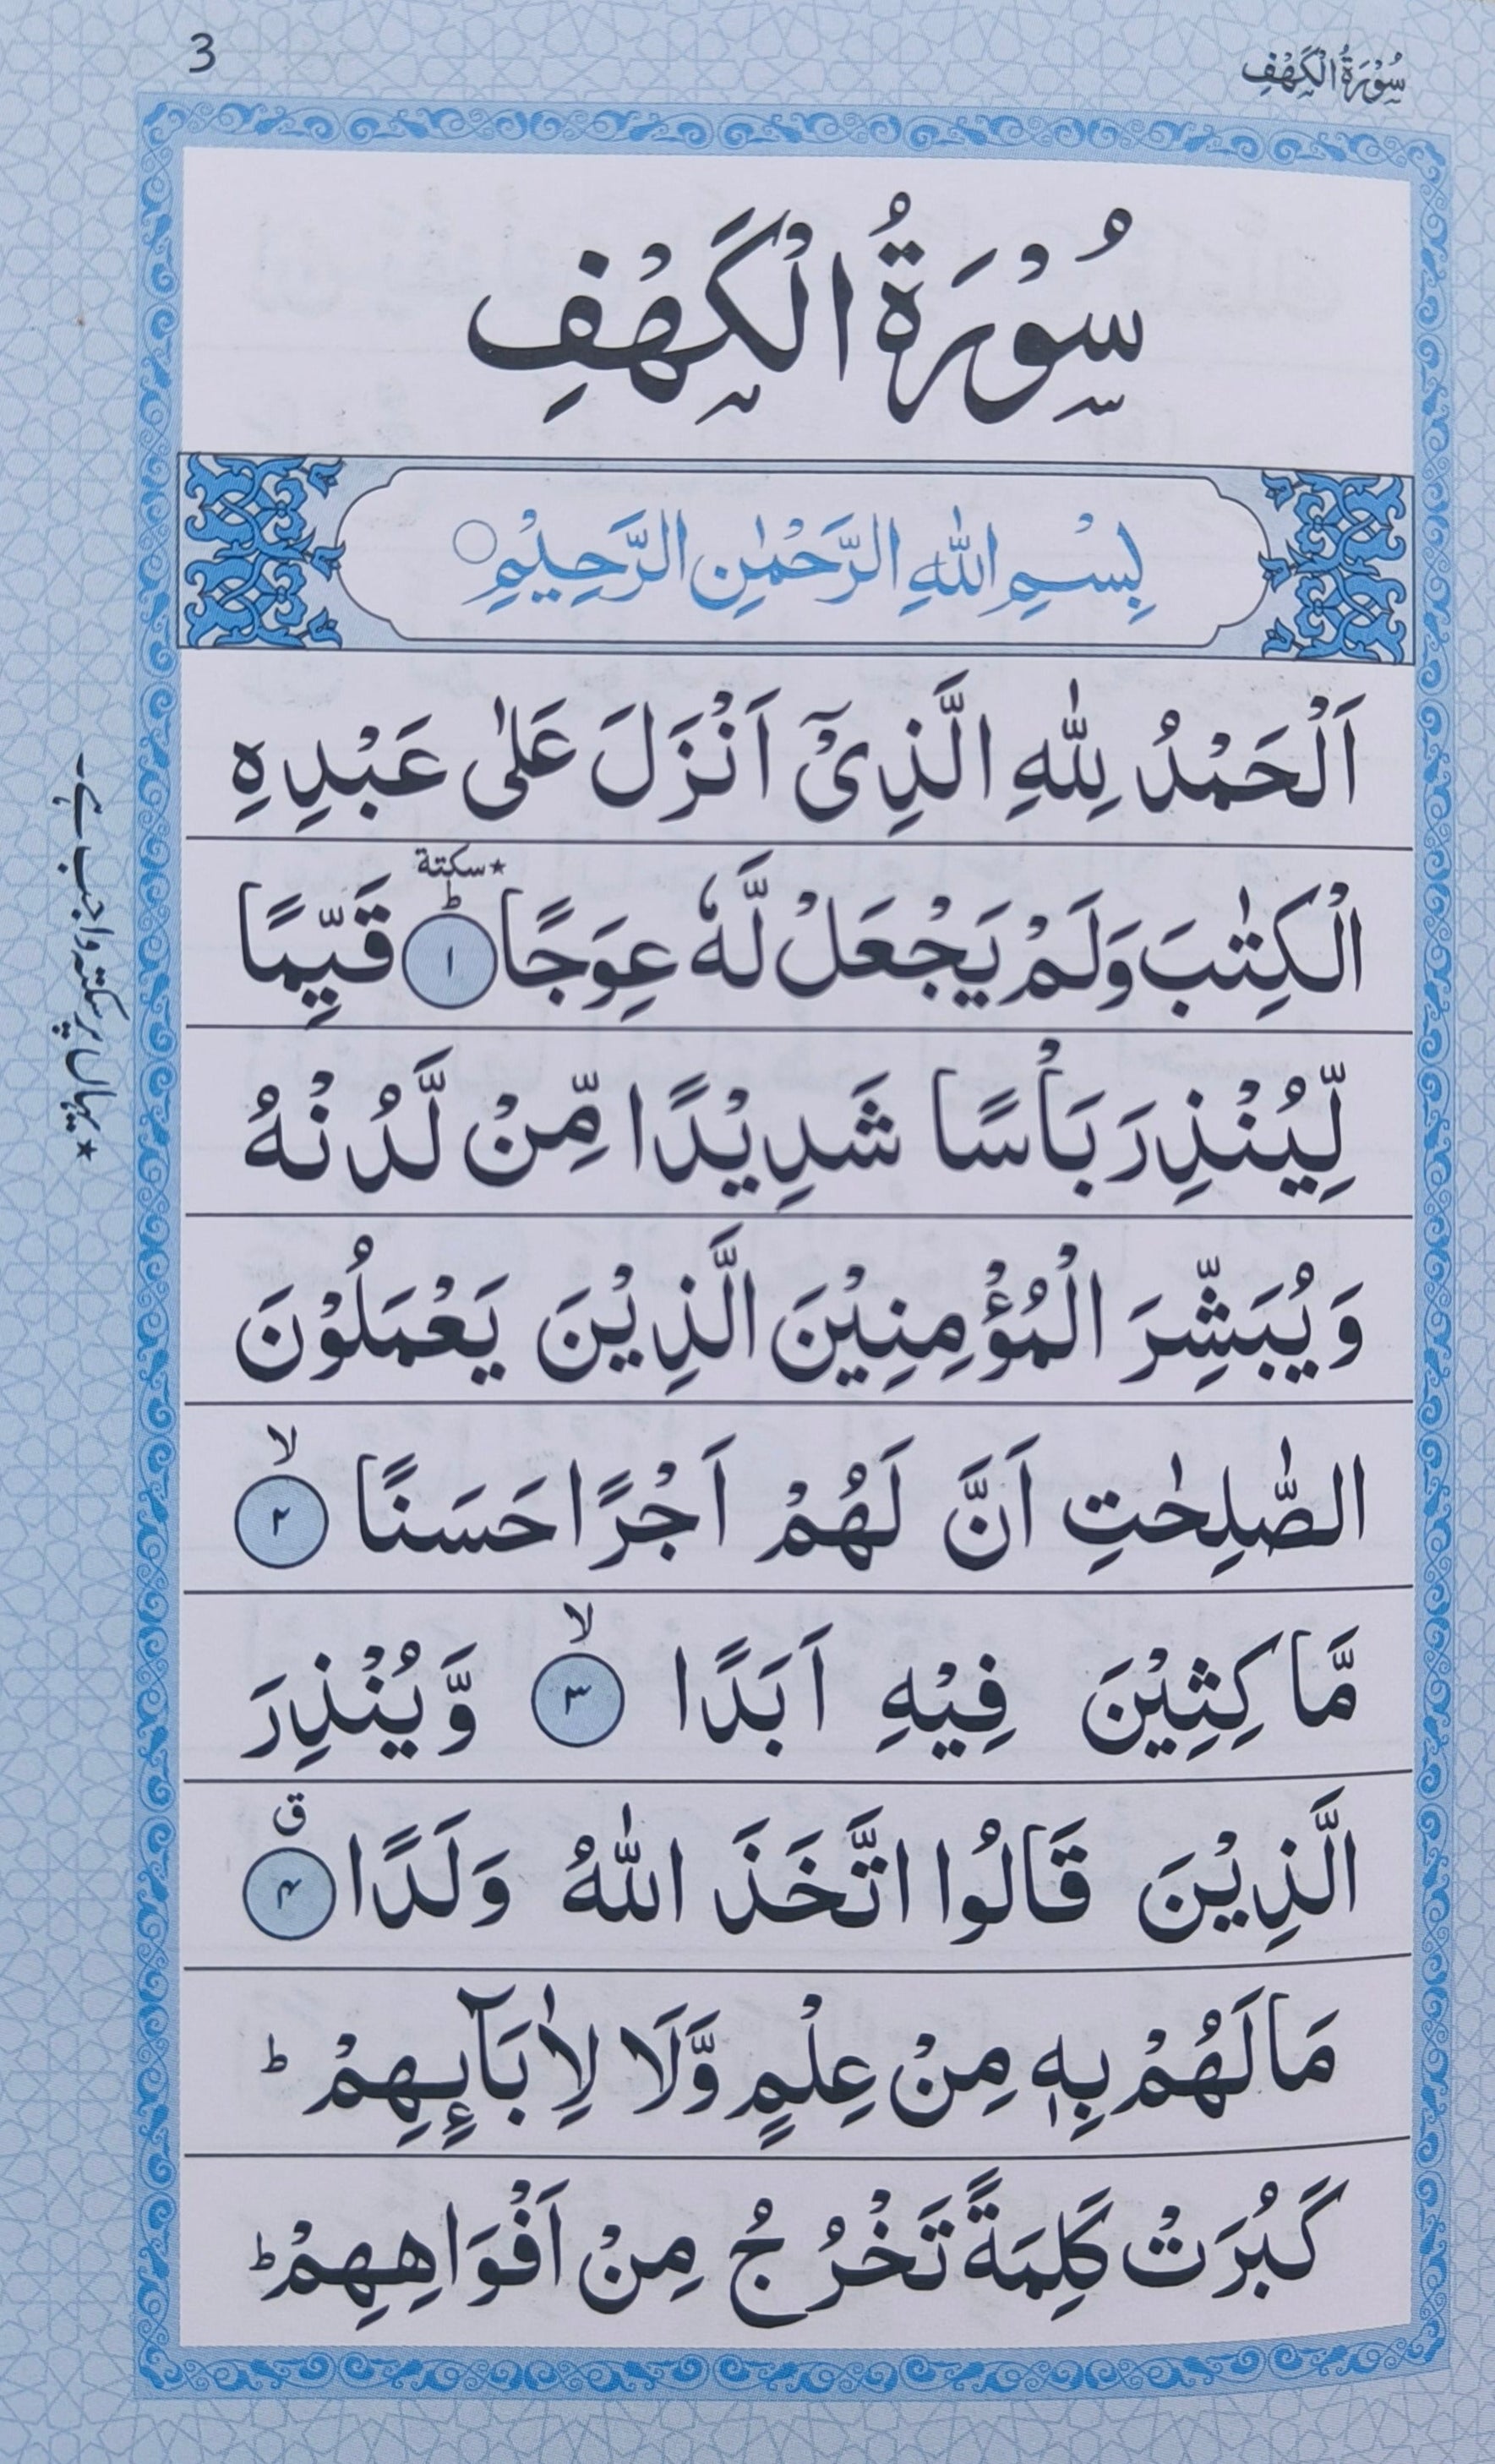 3
سُوْرَةُ الْكَهْفِ
سُوْرَةُ الْكَهْفِ
بِسْمِ اللّٰهِ الرَّحْمٰنِ الرَّحِيْمِ
اَلْحَمْدُ لِلّٰهِ الَّذِیْۤ اَنْزَلَ عَلٰی عَبْدِهِ
الْكِتٰبَ وَلَمْ يَجْعَلْ لَّهٗ عِوَجًا ؕ ﴿۱﴾ ٭سكتة قَيِّمًا
لِّيُنْذِرَ بَاْسًا شَدِيْدًا مِّنْ لَّدُنْهُ
وَيُبَشِّرَ الْمُؤْمِنِيْنَ الَّذِيْنَ يَعْمَلُوْنَ
الصّٰلِحٰتِ اَنَّ لَهُمْ اَجْرًا حَسَنًا ۙ ﴿۲﴾
مَّاكِثِيْنَ فِيْهِ اَبَدًا ۙ ﴿۳﴾ وَّيُنْذِرَ
الَّذِيْنَ قَالُوا اتَّخَذَ اللّٰهُ وَلَدًا ق ﴿۴﴾
مَا لَهُمْ بِهٖ مِنْ عِلْمٍ وَّلَا لِاٰبَآىِٕهِمْ ؕ
كَبُرَتْ كَلِمَةً تَخْرُجُ مِنْ اَفْوَاهِهِمْ ؕ
٭ یہاں پر سکتہ واجب ہے۔